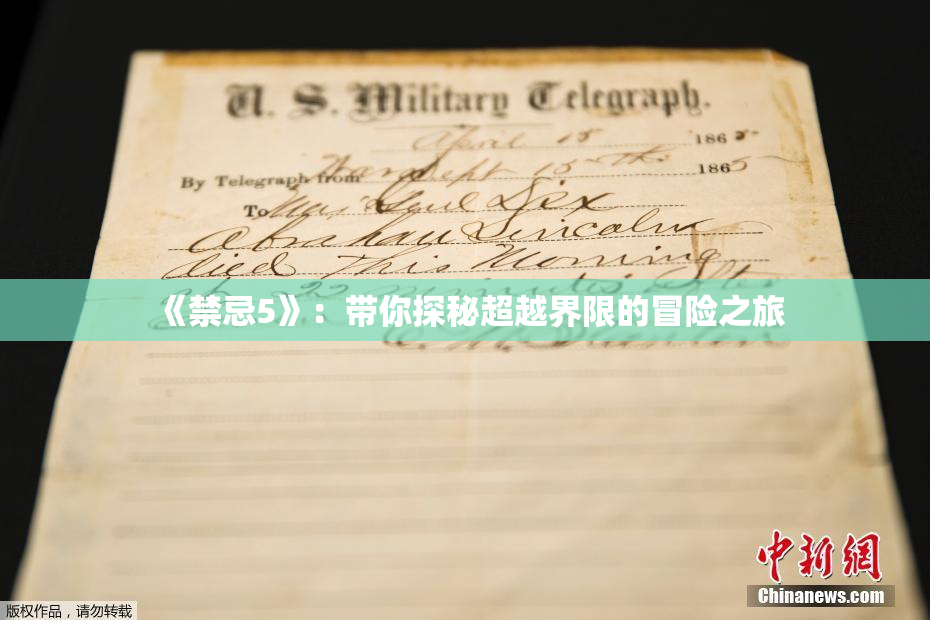 U. S. Military Telegraph.
April 15 1865
By Telegraph from War Dept 15th 1865
To Maj Genl Dix
Abraham Lincoln
died This Morning
at 22 minutes after
《禁忌5》：带你探秘超越界限的冒险之旅
中新网
Chinanews.com
版权作品，请勿转载